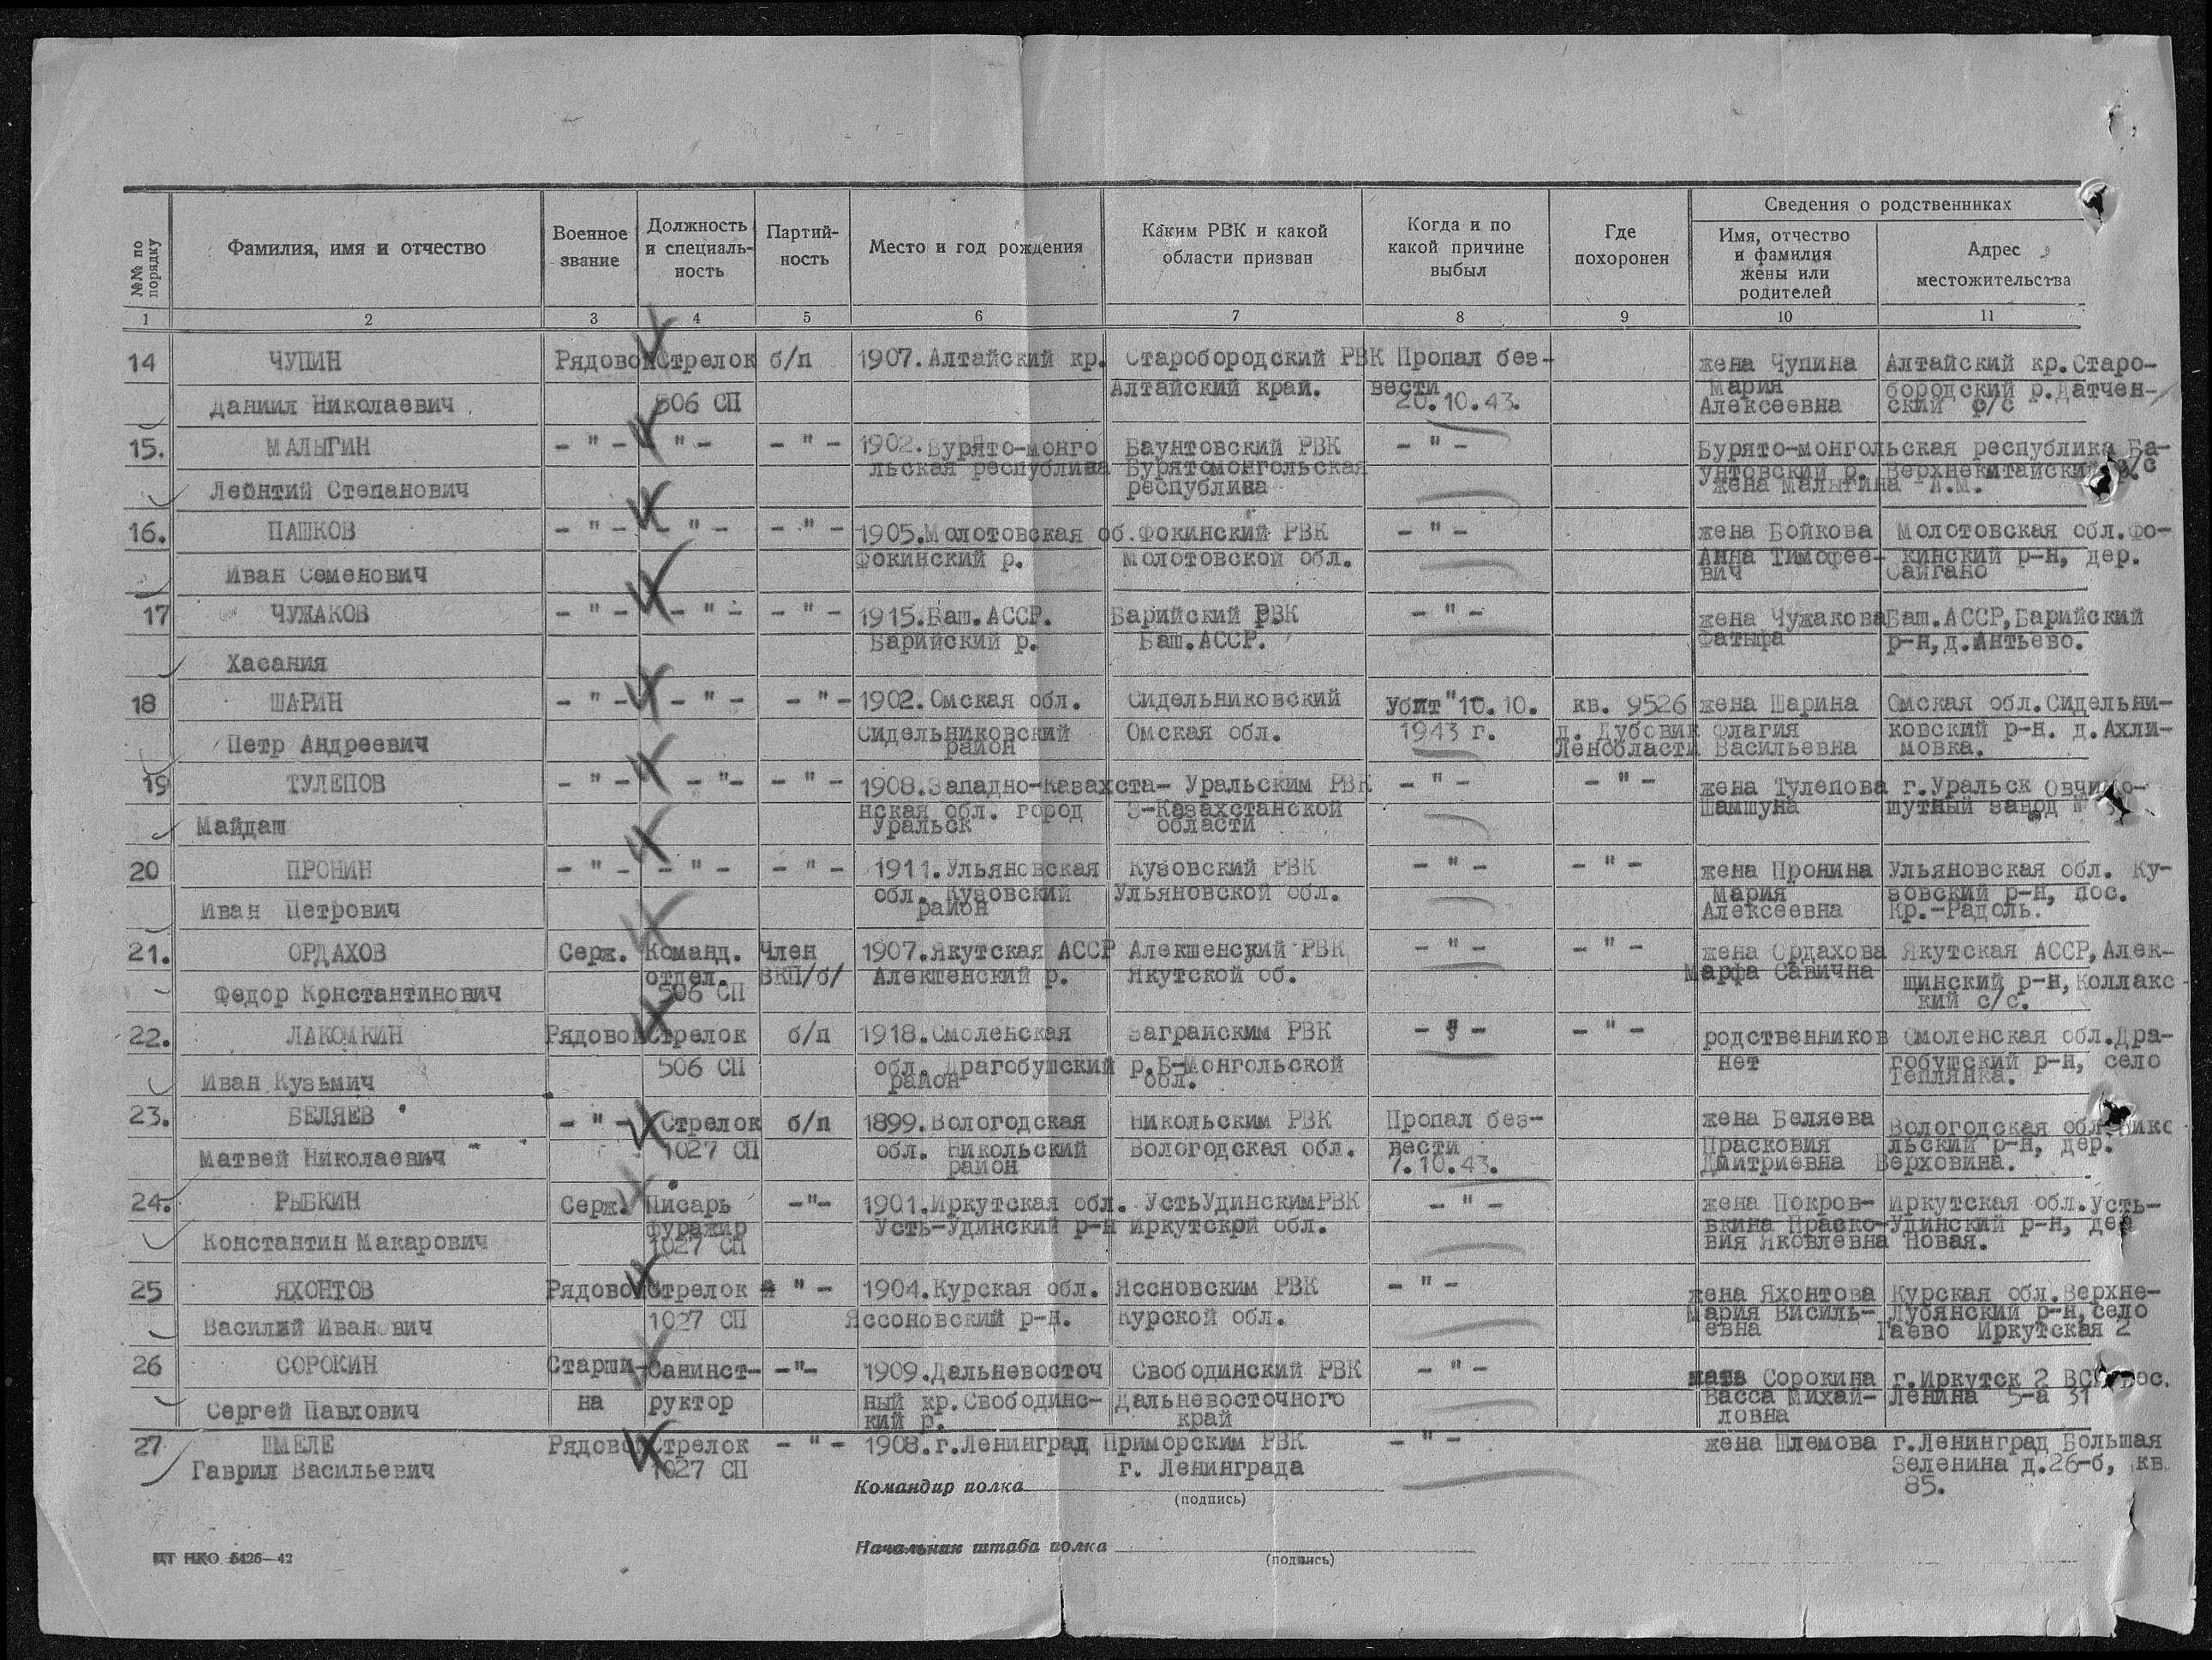 №№ по порядку
Фамилия, имя и отчество
Военное звание
Должность и специаль-ность
Партий-ность
Место и год рождения
Каким РВК и какой области призван
Когда и по какой причине выбыл
Где похоронен
Сведения о родственниках
Имя, отчество и фамилия жены или родителей
Адрес местожительства
1 2 3 4 5 6 7 8 9 10 11
14 ЧУПИН Рядовой Стрелок б/п 1907.Алтайский кр. Старобородский РВК Пропал без- жена Чупина Алтайский кр.Старо-
Алтайский край. вести Мария бородский р.Датчен-
Даниил Николаевич 506 СП 20.10.43. Алексеевна ский с/с
15. МАЛЫГИН - " - " - - " - 1902.Бурято-монго Баунтовский РВК - " - Бурято-монгольская республика Ба-
льская республика Бурятомонгольская унтовский р. Верхнекитайский с/с
Леонтий Степанович республика жена Малыгина А.М.
16. ПАШКОВ - " - - " - - " - 1905.Молотовская об.Фокинский РВК - " - жена Бойкова Молотовская обл.Фо-
Фокинский р. Молотовской обл. Анна Тимофее- кинский р-н, дер.
Иван Семенович вич Сайгано
17 ЧУЖАКОВ - " - - " - - " - 1915.Баш.АССР. Барийский РВК - " - жена Чужакова Баш.АССР,Барийский
Барийский р. Баш.АССР. Фатыфа р-н,д.Антьево.
Хасания
18 ШАРИН - " - - " - - " - 1902.Омская обл. Сидельниковский Убит "10.10. кв. 9526 жена Шарина Омская обл.Сидельни-
Сидельниковский Омская обл. 1943 г. д. Дубовик Флагия ковский р-н. д.Ахли-
Петр Андреевич район Ленобласти Васильевна мовка.
19 ТУЛЕПОВ - " - - "- - " - 1908.Западно-Казахста- Уральским РВК - " - - " - жена Тулепова г.Уральск Овчино-
нская обл. город З-Казахстанской Шамшуна шутный завод №
Майдаш Уральск области
20 ПРОНИН - " - - " - - " - 1911.Ульяновская Кузовский РВК - " - - " - жена Пронина Ульяновская обл. Ку-
обл. Кузовский Ульяновской обл. Мария зовский р-н, пос.
Иван Петрович район Алексеевна Кр.-Радоль.
21. ОРДАХОВ Серж. Команд. Член 1907.Якутская АССР Алекшенский РВК - " - - " - жена Ордахова Якутская АССР,Алек-
отдел. ВКП/б/ Алекшенский р. Якутской об. Марфа Савична шинский р-н,Коллакс
Федор Крнстантинович 506 СП кий с/с.
22. ЛАКОМКИН Рядовой Стрелок б/п 1918.Смоленская Заграйским РВК - " - - " - родственников Смоленская обл.Дра-
506 СП обл. Драгобушский р.Б-Монгольской нет гобушский р-н, село
Иван Кузьмич район обл. Теплянка.
23. БЕЛЯЕВ - " - Стрелок б/п 1899.Вологодская Никольским РВК Пропал без- жена Беляева Вологодская обл.Нико
1027 СП обл. Никольский Вологодская обл. вести Прасковия льский р-н, дер.
Матвей Николаевич район 7.10.43. Дмитриевна Верховина.
24. РЫБКИН Серж. Писарь -"- 1901.Иркутская обл. УстьУдинскимРВК - " - жена Покров- Иркутская обл.Усть-
фуражир Усть-Удинский р-н Иркутской обл. вкина Праско- Удинский р-н, дер
Константин Макарович 1027 СП вия Яковлевна Новая.
25 ЯХОНТОВ Рядовой Стрелок " - 1904.Курская обл. Яссновским РВК - " - жена Яхонтова Курская обл.Верхне-
1027 СП Яссоновский р-н. Курской обл. Мария Висиль- Лубянский р-н,село
Василий Иванович евна Гаево Иркутская 2
26 СОРОКИН Старши- Санинст- -"- 1909.Дальневосточ Свободинский РВК - " - мать Сорокина г.Иркутск 2 пос.
на руктор ный кр.Свободинс- Дальневосточного Васса Михай- Ленина 5-а 31
Сергей Павлович кий р. край ловна
27 ШМЕЛЕ Рядовой Стрелок - " - 1908.г.Ленинград Приморским РВК - " - жена Шлемова г.Ленинград Большая
Гаврил Васильевич 1027 СП г. Ленинграда Зеленина д.26-б, кв.
85.
Командир полка
(подпись)
Начальник штаба полка
(подпись)
ЦТ НКО 5426—42